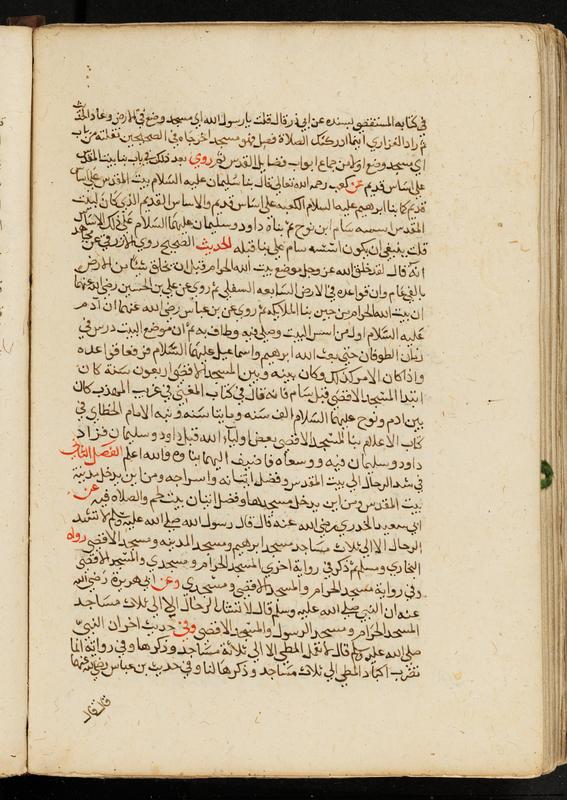 في كتابه المستقصى بسنده عن ابي ذر قال قلت يا رسول الله اي مسجد وضع في الارض وعاد الحديث
ثم زاد الفزاري اينما ادركتك الصلاة فصل فهو مسجد اخرجاه في الصحيحين نقلته من باب
اي مسجد وضع اولا من جماع ابواب فضايل القدس ثم روي بعد ذلك في باب بنا بيت المقدس
على اساس قديم عن كعب رحمه الله تعالى قال بنا سليمان عليه السلام بيت المقدس على اساس
قديم كما بنا ابرهيم عليه السلام الكعبه على اساس قديم والاساس القديم الذي كان لبيت
المقدس اسسه سام ابن نوح ثم بناه داود وسليمان عليهما السلام على ذلك الاساس
قلت ينبغي ان يكون اسسه سام على بنا قبله للحديث الصحيح روي الازرقي عن مجاهد
انه قال لقد خلق الله عز وجل موضع بيت الله الحرام قبل ان يخلق شيئا من الارض
بالفي عام وان قواعده في الارض السابعه السفلى ثم روي عن علي بن الحسين رضي الله عنهما
ان بيت الله الحرام من حين بنا الملايكه ثم روي عن بن عباس رضي الله عنهما ان آدم
عليه السلام اول من اسس البيت وصلى فيه وطاف به ثم ان موضع البيت درس في
زمان الطوفان حتى بعث الله ابرهيم واسماعيل عليهما السلام فرفعا قواعده
واذا كان الامر كذلك وكان بينه وبين المسجد الاقصى اربعون سنة كان
ابتدا المسجد الاقصى قبل سام فانه قال في كتاب المغني في غريب المهذب كان
بين ادم ونوح عليهما السلام الف سنه ومايتا سنه ونبه الامام الخطابي في
كتاب الاعلام بنا المسجد الاقصى بعض اولياء الله قبل داود وسليمان فزاد
داود وسليمان فيه ووسعاه فاضيف اليهما بناوه والله اعلم الفصل الثاني
في شد الرحال الى بيت المقدس وفضل اتيانه واسراجه ومن اين يدخل مدينة
بيت المقدس ومن اين يدخل مسجدها وفضل اتيان بيت لحم والصلاه فيه عن
ابي سعيد الخدري رضي الله عنه قال قال رسول الله صلى الله عليه وسلم لا تشد
الرحال الا الى ثلاث مساجد مسجد ابرهيم ومسجد المدينه ومسجد الاقصى رواه
البخاري ومسلم وذكر في رواية اخرى المسجد الحرام ومسجدي والمسجد الاقصى
وفي رواية مسجد الحرام والمسجد الاقصى ومسجدي وعن ابي هريرة رضي الله
عنه ان النبي صلى الله عليه وسلم قال لا تشد الرحال الا الى ثلاث مساجد
المسجد الحرام ومسجد الرسول والمسجد الاقصى وفي حديث اخر ان النبي
صلى الله عليه وسلم قال لا تعمل المطي الا الى ثلاثة مساجد وذكرها وفي رواية انما
تضرب اكباد المطي الى ثلاث مساجد وذكرها لنا وفي حديث بن عباس رضي الله عنهما
قال قال